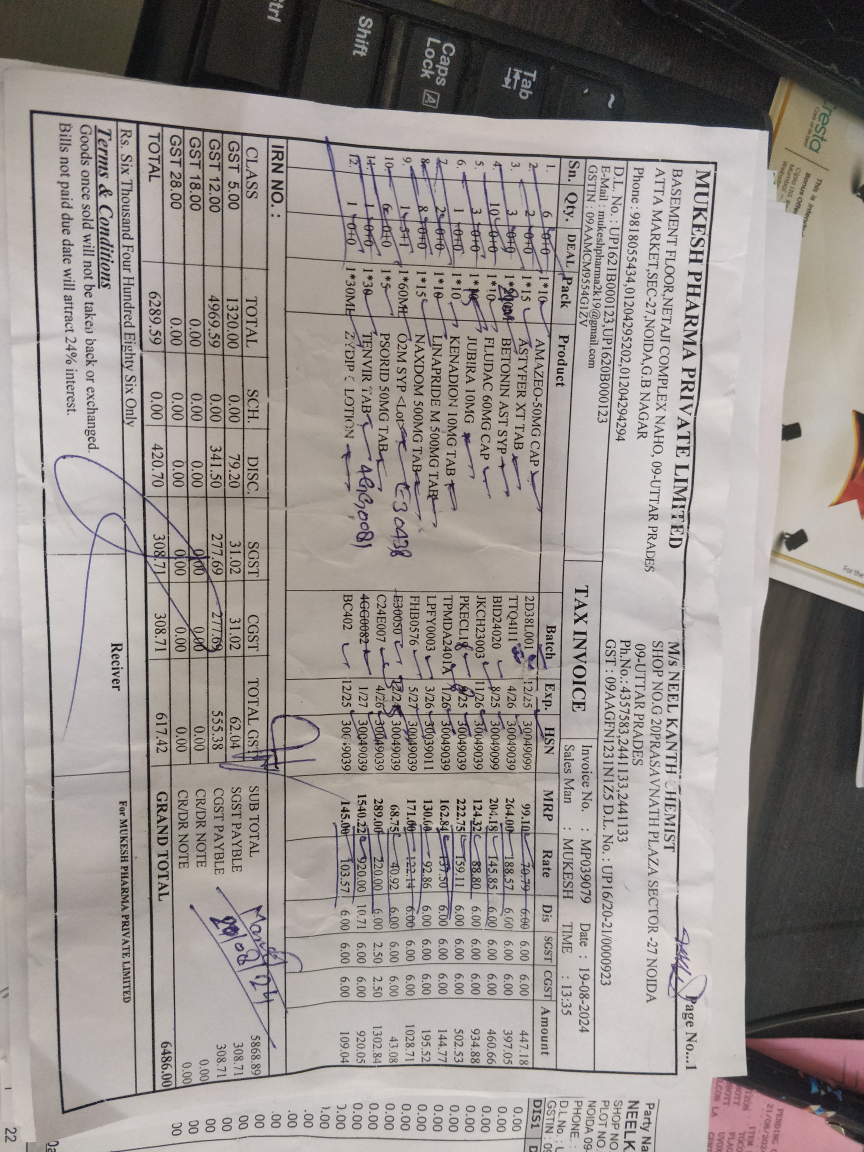 MUKESH PHARMA PRIVATE LIMITED
BASEMENT FLOOR,NETAJI COMPLEX NAHO, 09-UTTAR PRADES
ATTA MARKET,SEC-27,NOIDA,G.B NAGAR
Phone : 9818055434,01204295202,01204294294
D.L. No. : UP1621B000123,UP1620B000123
E-Mail : mukeshpharma2k19@gmail.com
GSTIN : 09AAMCM9554G1ZV
TAX INVOICE
Page No...1
M/s NEEL KANTH CHEMIST
SHOP NO.G 20PRASAVNATH PLAZA SECTOR -27 NOIDA
09-UTTAR PRADES
Ph.No.: 4357583,2441133,2441133
GST : 09AAGFN1231N1Z5 D.L. No. : UP16/20-21/0000923
Invoice No. : MP039079 Date : 19-08-2024
Sales Man : MUKESH TIME : 13:35
Sn. Qty. DEAL Pack Product Batch Exp. HSN MRP Rate Dis SGST CGST Amount
1. 6 0+0 1*10 AMAZEO-50MG CAP 2D38L001 12/25 30049099 99.10 70.79 6.00 6.00 6.00 447.18
2. 2 0+0 1*15 ASTYFER XT TAB TTQ4111 4/26 30049039 264.00 188.57 6.00 6.00 6.00 397.05
3. 3 0+0 BETONIN AST SYP BID24020 8/25 30049099 204.18 145.85 6.00 6.00 6.00 460.66
4. 10 0+0 1*10 FLUDAC 60MG CAP JKCH23003 11/26 30049039 124.32 88.80 6.00 6.00 6.00 934.88
5. 3 0+0 JUBIRA 10MG 30049039 222.75 159.11 6.00 6.00 6.00 502.53
6. 1 0+0 1*10 KENADION 10MG TAB TPMDA2401A 1/26 30049039 162.84 6.00 6.00 6.00 144.77
7. 2 0+0 1*10 LINAPRIDE M 500MG TAB LPFY0003 3/26 30039011 92.86 6.00 6.00 6.00 195.52
8. 8 0+0 1*15 NAXDOM 500MG TAB FHB0576 5/27 30049039 171.00 122.14 6.00 6.00 6.00 1028.71
9. 1*60ML O2M SYP E30438 E30050 30049039 68.75 40.92 6.00 6.00 6.00 43.08
10. 6 0+0 1*5 PSORID 50MG TAB C24E007 4/26 30049039 289.00 220.00 6.00 2.50 2.50 1302.84
11. 1 0+0 1*30 TENVIR TAB 4GG0081 4GG0082 1/27 30049039 1540.22 920.00 10.71 6.00 6.00 920.05
12. 1 0+0 1*30ML LOTION BC402 12/25 30049039 145.00 103.57 6.00 6.00 6.00 109.04
IRN NO. :
CLASS TOTAL SCH. DISC. SGST CGST TOTAL GST
GST 5.00 1320.00 0.00 79.20 31.02 31.02 62.04
GST 12.00 4969.59 0.00 341.50 277.69 277.69 555.38
GST 18.00 0.00 0.00 0.00 0.00 0.00 0.00
GST 28.00 0.00 0.00 0.00 0.00 0.00 0.00
TOTAL 6289.59 0.00 420.70 308.71 308.71 617.42
SUB TOTAL 5868.89
SGST PAYBLE 308.71
CGST PAYBLE 308.71
CR/DR NOTE 0.00
CR/DR NOTE 0.00
GRAND TOTAL 6486.00
Rs. Six Thousand Four Hundred Eighty Six Only
Terms & Conditions
Goods once sold will not be taken back or exchanged.
Bills not paid due date will attract 24% interest.
Reciver
For MUKESH PHARMA PRIVATE LIMITED
Tab
Caps
Lock
Shift
Ctrl
Party Na
NEELK
SHOP NO
PLOT NO.
NOIDA 09-
PHONE. :
D.L.No. :
GSTIN : 09
DIS1
PENDING
21/08/202
ITEM
22